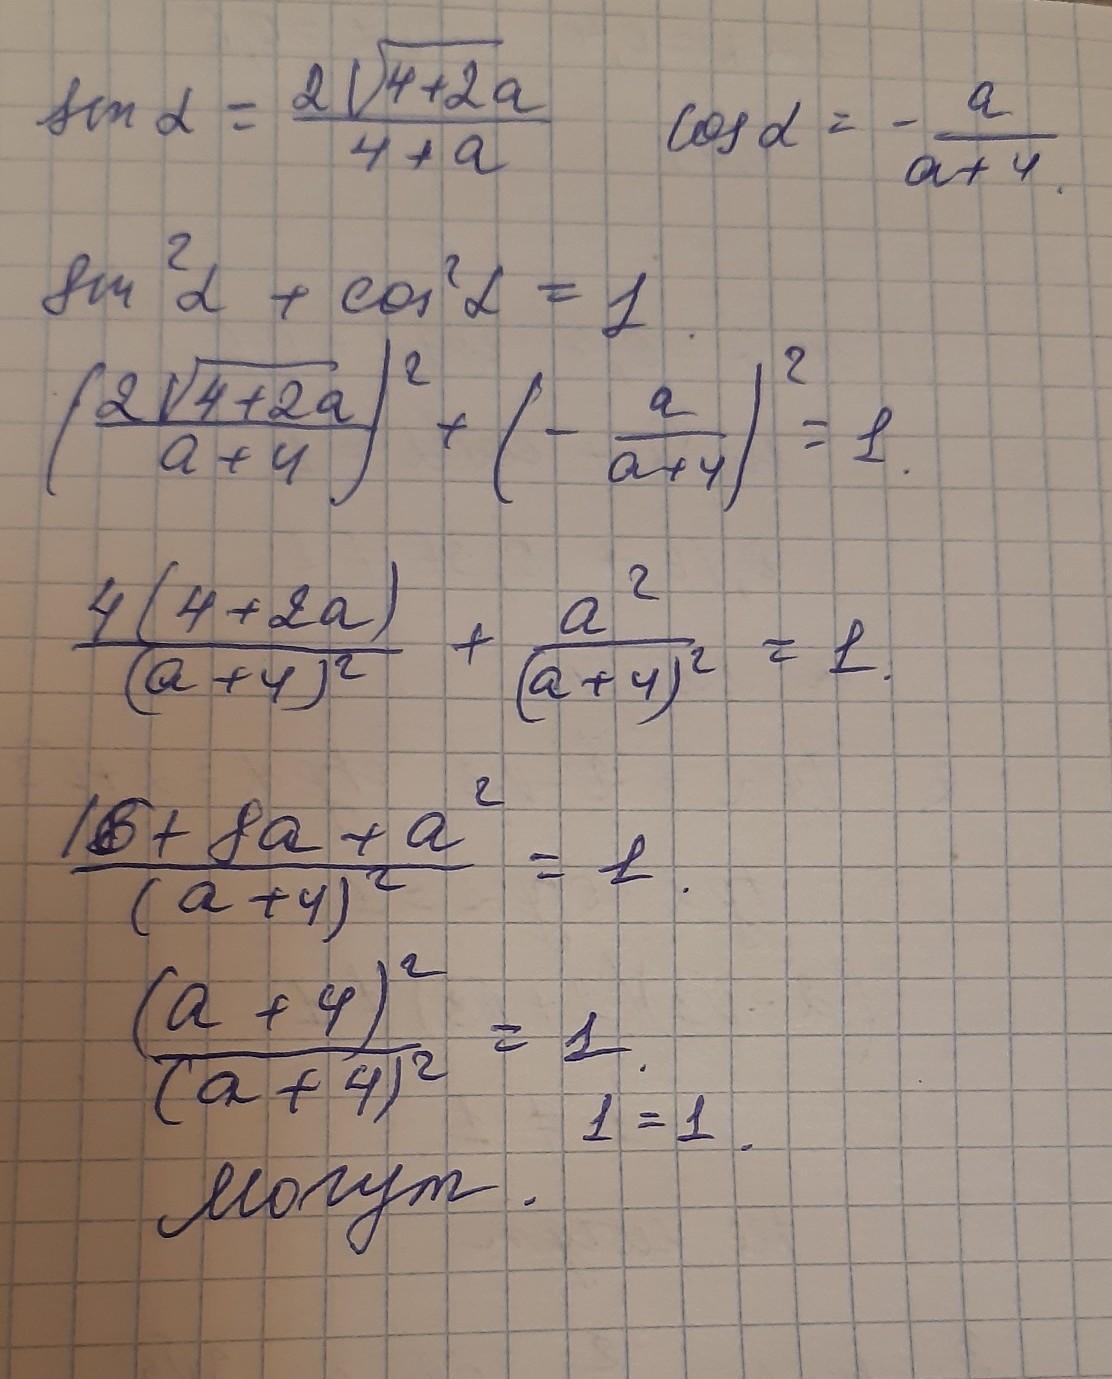 sin α = 2√(4+2a) / (4+a)   cos α = - a / (a+4).
sin²α + cos²α = 1.
(2√(4+2a) / (a+4))² + (- a / (a+4))² = 1.
4(4+2a) / (a+4)² + a² / (a+4)² = 1.
(16+8a+a²) / (a+4)² = 1.
(a+4)² / (a+4)² = 1.
1 = 1.
Могут.